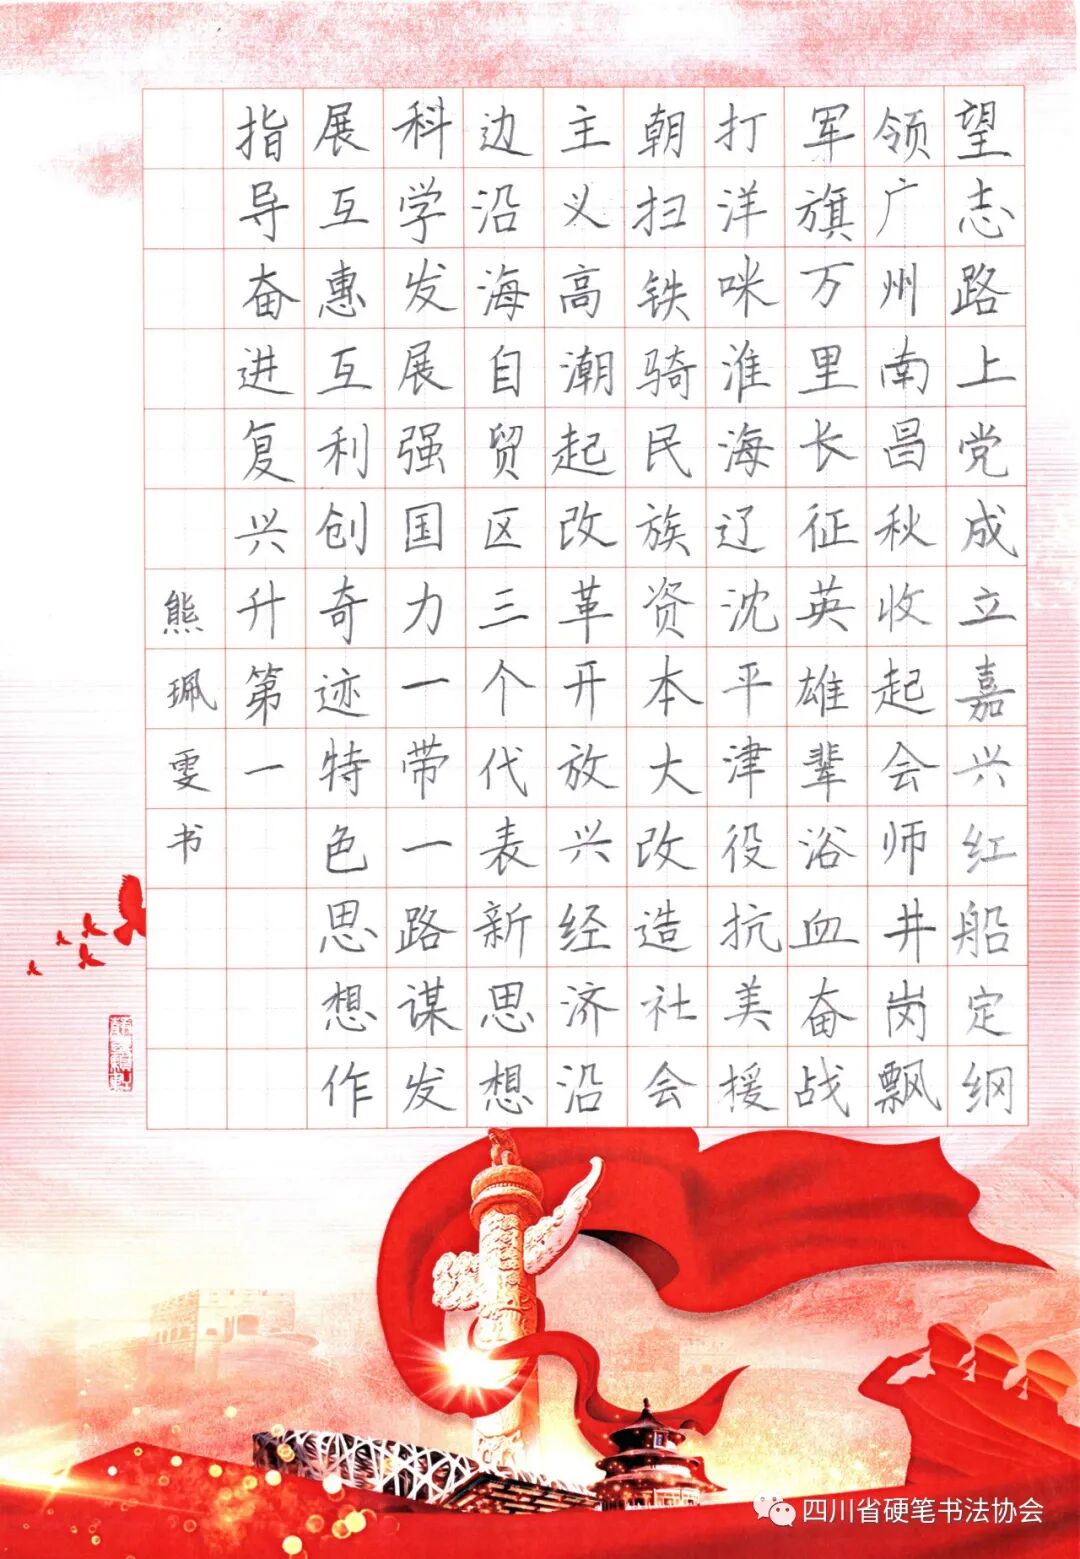 望志路上党成立嘉兴红船定纲
领广州南昌秋收起会师井岗飘
军旗万里长征英雄辈浴血奋战
打洋咪淮海辽沈平津役抗美援
朝扫铁骑民族资本大改造社会
主义高潮起改革开放兴经济沿
边沿海自贸区三个代表新思想
科学发展强国力一带一路谋发
展互惠互利创奇迹特色思想作
指导奋进复兴升第一
熊珮雯书
四川省硬笔书法协会